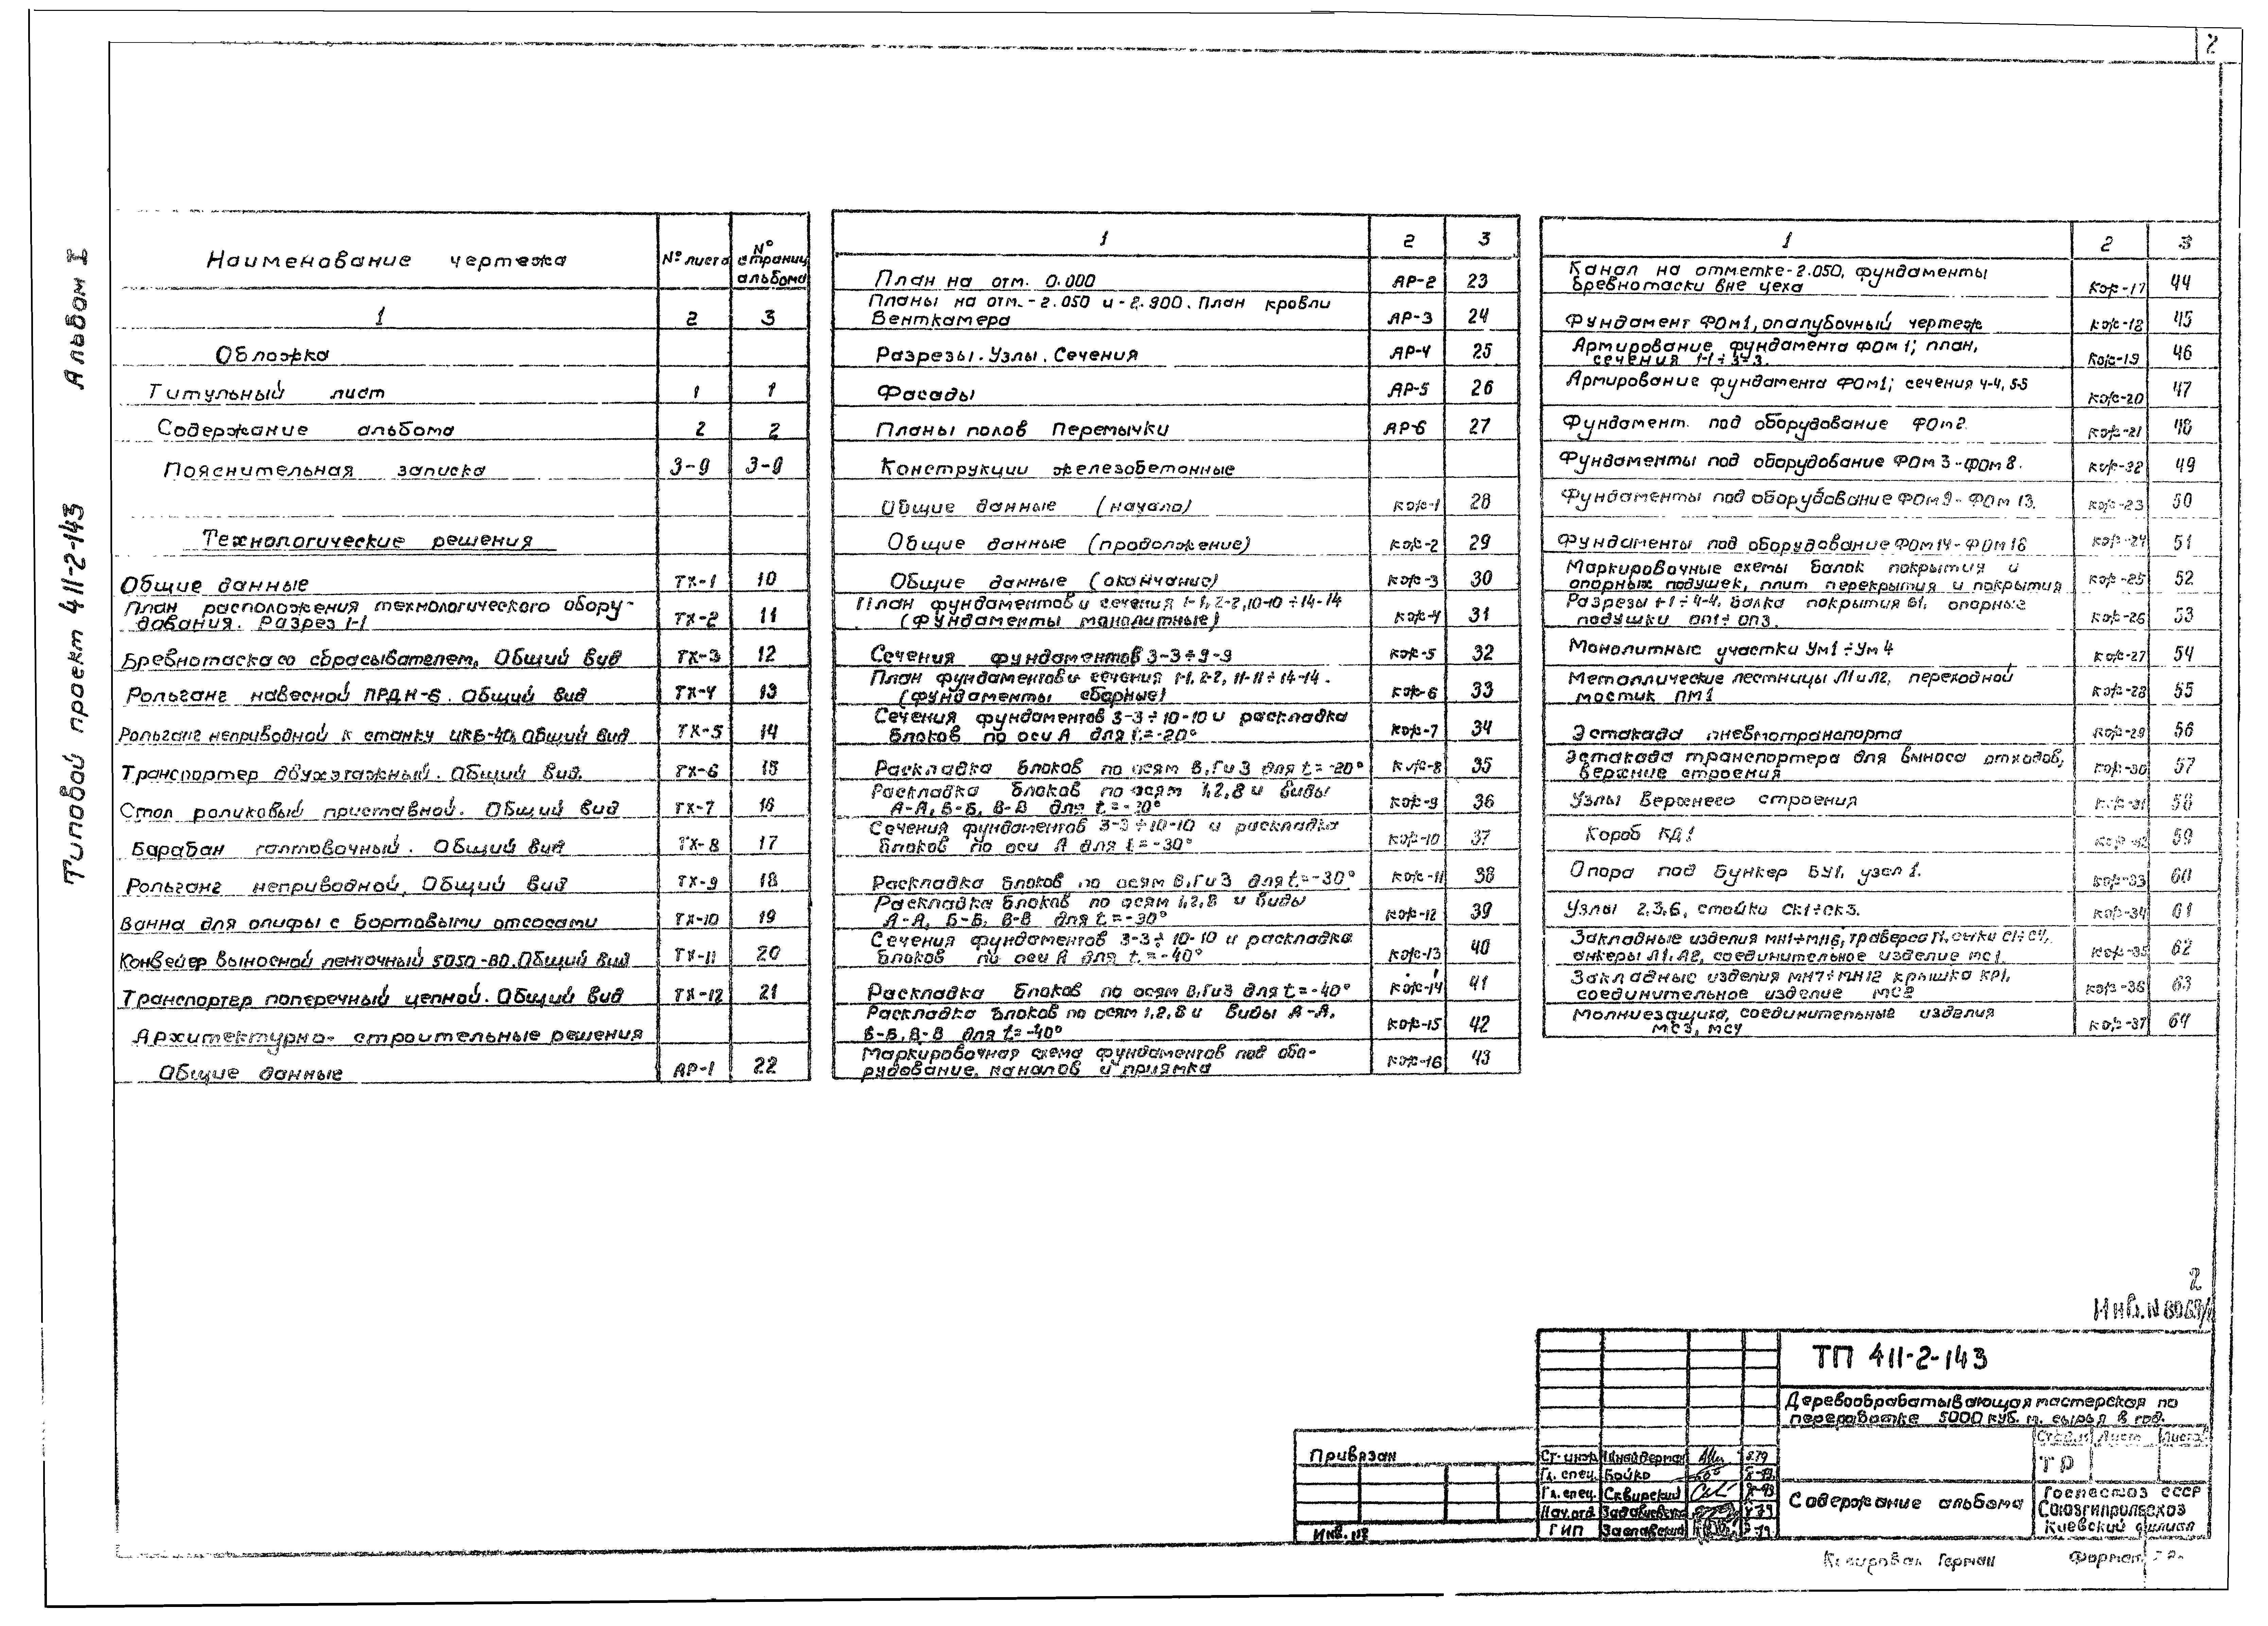 2
Альбом I
Типовой проект 411-2-143
Наименование чертежа № листа № страниц альбома
1 2 3
Обложка
Титульный лист 1 1
Содержание альбома 2 2
Пояснительная записка 3-9 3-9
Технологические решения
Общие данные ТХ-1 10
План расположения технологического обору-
дования. Разрез 1-1 ТХ-2 11
Бревнотаска со сбрасывателем. Общий вид ТХ-3 12
Рольганг навесной ПРДН-6. Общий вид ТХ-4 13
Рольганг неприводной к станку ЦКБ-40. Общий вид ТХ-5 14
Транспортер двухэтажный. Общий вид. ТХ-6 15
Стол роликовый приставной. Общий вид ТХ-7 16
Барабан галтовочный. Общий вид ТХ-8 17
Рольганг неприводной, Общий вид ТХ-9 18
Ванна для олифы с бортовыми отсосами ТХ-10 19
Конвейер выносной ленточный 5050-80. Общий вид ТХ-11 20
Транспортер поперечный цепной. Общий вид ТХ-12 21
Архитектурно-строительные решения
Общие данные АР-1 22
1 2 3
План на отм. 0.000 АР-2 23
Планы на отм. -2.050 и -2.900. План кровли
Венткамера АР-3 24
Разрезы. Узлы. Сечения АР-4 25
Фасады АР-5 26
Планы полов Перемычки АР-6 27
Конструкции железобетонные
Общие данные (начало) КЖ-1 28
Общие данные (продолжение) КЖ-2 29
Общие данные (окончание) КЖ-3 30
План фундаментов и сечения 1-1, 2-2, 10-10÷14-14
(фундаменты монолитные) КЖ-4 31
Сечения фундаментов 3-3÷9-9 КЖ-5 32
План фундаментов и сечения 1-1, 2-2, 11-11÷14-14.
(фундаменты сборные) КЖ-6 33
Сечения фундаментов 3-3÷10-10 и раскладка
блоков по оси А для t=-20° КЖ-7 34
Раскладка блоков по осям В,Г и 3 для t=-20° КЖ-8 35
Раскладка блоков по осям 1,2,8 и виды
А-А, Б-Б, В-В для t=-20° КЖ-9 36
Сечения фундаментов 3-3÷10-10 и раскладка
блоков по оси А для t=-30° КЖ-10 37
Раскладка блоков по осям В,Г и 3 для t=-30° КЖ-11 38
Раскладка блоков по осям 1,2,8 и виды
А-А, Б-Б, В-В для t=-30° КЖ-12 39
Сечения фундаментов 3-3÷10-10 и раскладка
блоков по оси А для t=-40° КЖ-13 40
Раскладка блоков по осям В,Г и 3 для t=-40° КЖ-14 41
Раскладка блоков по осям 1,2,8 и виды А-А,
Б-Б, В-В для t=-40° КЖ-15 42
Маркировочная схема фундаментов под обо-
рудование, каналов и приямка КЖ-16 43
1 2 3
Канал на отметке -2.050, фундаменты
бревнотаски вне цеха КЖ-17 44
Фундамент ФОм1, опалубочный чертеж КЖ-18 45
Армирование фундамента ФОм1; план,
сечения 1-1÷3-3. КЖ-19 46
Армирование фундамента ФОм1; сечения 4-4, 5-5 КЖ-20 47
Фундамент под оборудование ФОм2. КЖ-21 48
Фундаменты под оборудование ФОм3-ФОм8. КЖ-22 49
Фундаменты под оборудование ФОм9-ФОм13. КЖ-23 50
Фундаменты под оборудование ФОм14-ФОм16 КЖ-24 51
Маркировочные схемы балок покрытия и
опорных подушек, плит перекрытия и покрытия КЖ-25 52
Разрезы 1-1÷4-4. Балка покрытия Б1, опорные
подушки ОП1÷ОП3. КЖ-26 53
Монолитные участки Ум1÷Ум4 КЖ-27 54
Металлические лестницы Л1 и Л2, переходной
мостик ПМ1 КЖ-28 55
Эстакада пневмотранспорта КЖ-29 56
Эстакада транспортера для выноса отходов,
верхние строения КЖ-30 57
Узлы верхнего строения КЖ-31 58
Короб КД1 КЖ-32 59
Опора под бункер БУ1, узел 1. КЖ-33 60
Узлы 2,3,6, стойки СК1÷СК3. КЖ-34 61
Закладные изделия МН1÷МН6, траверса Т1, С1÷С4,
анкеры Л1, А2, соединительное изделие МС1. КЖ-35 62
Закладные изделия МН7÷МН12 крышка КР1,
соединительное изделие МС2 КЖ-36 63
Молниезащита, соединительные изделия
МС3, МС4 КЖ-37 64
2
Инв. N
ТП 411-2-143
Деревообрабатывающая мастерская по
переработке 5000 куб. м. сырья в год.
Стадия Лист Листов
ТР
Содержание альбома
Гослесхоз СССР
Союзгипролесхоз
Киевский филиал
Привязан
Инв. №
Ст. инж. Шнайдерман
Гл. спец. Бойко
Гл. спец. Сквирский
Нач. отд.
ГИП Заславский
Копировал Герман Формат